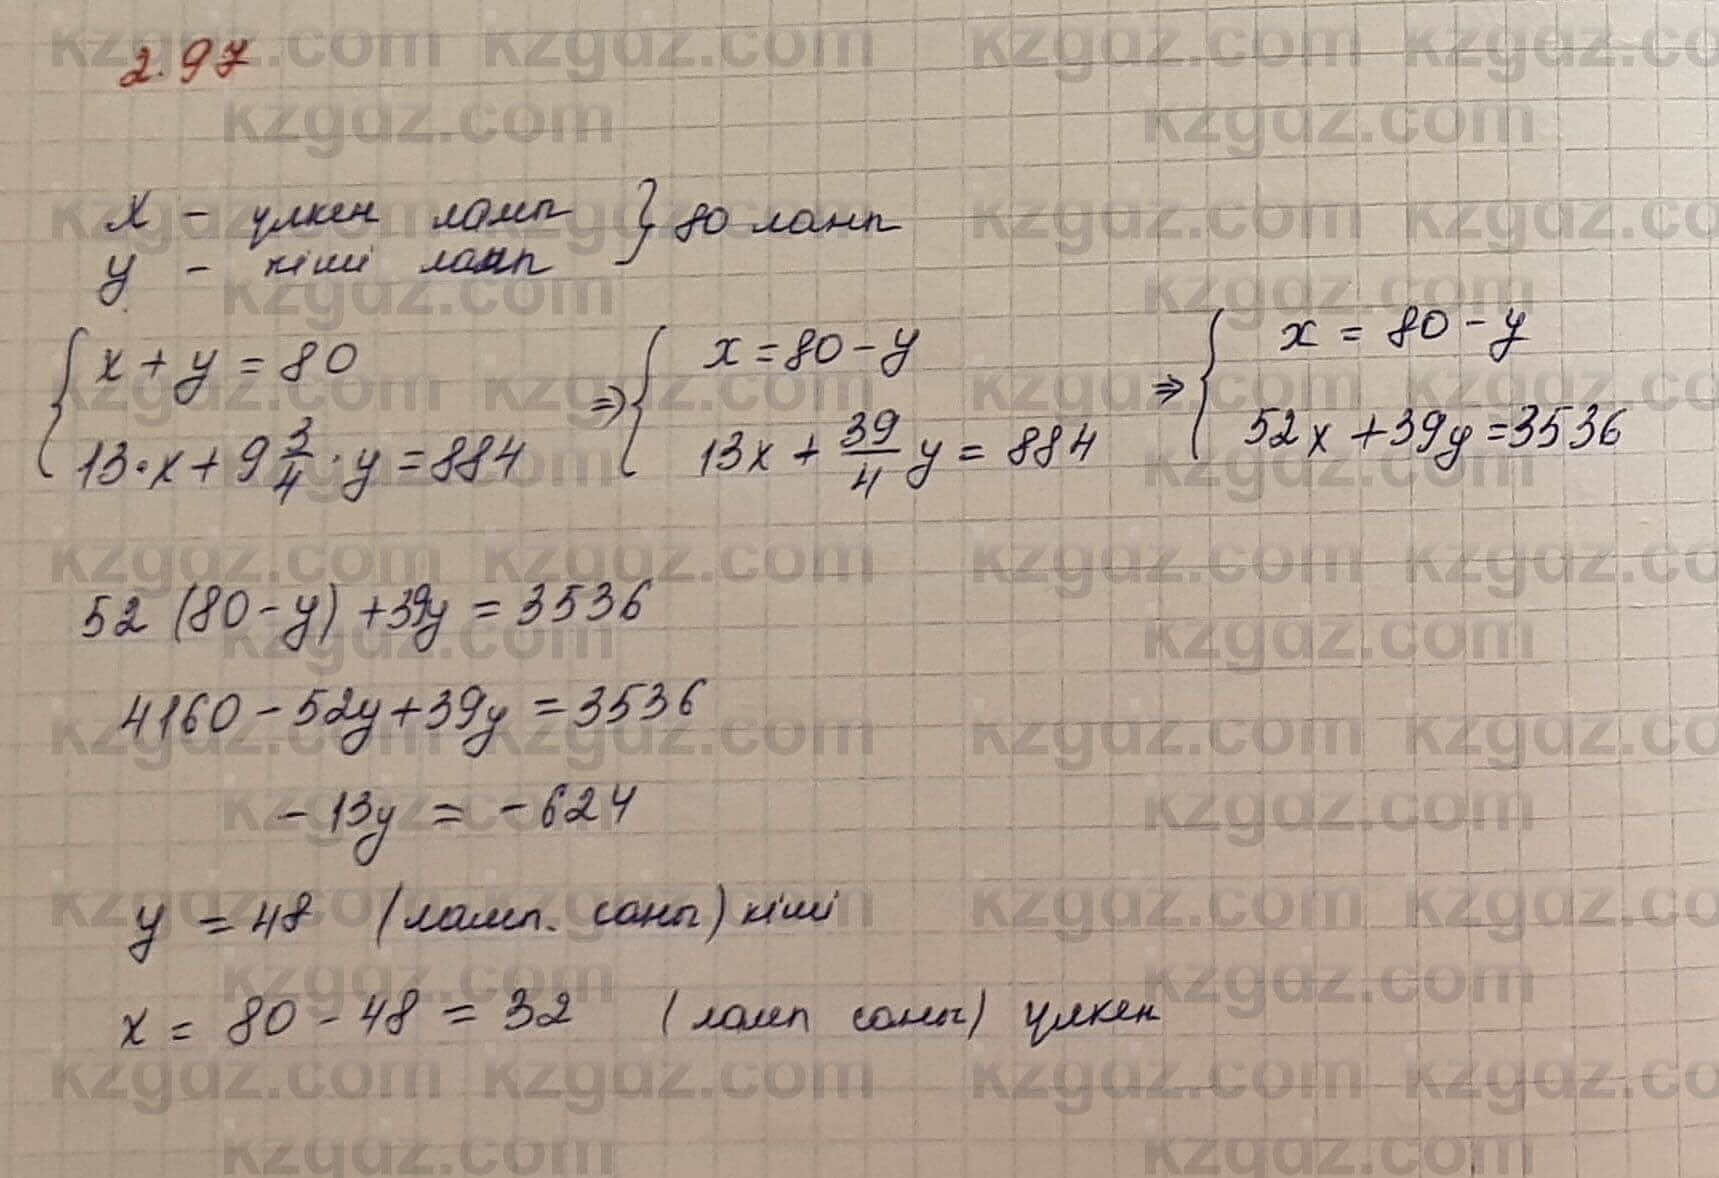 2.97
x - үлкен ламп } 80 ламп
y - кіші ламп
{ x + y = 80 ⇒ { x = 80 - y ⇒ { x = 80 - y
13·x + 9 3/4 · y = 884 13x + 39/4 y = 884 52x + 39y = 3536
52 (80 - y) + 39y = 3536
4160 - 52y + 39y = 3536
- 13y = - 624
y = 48 (ламп. саны) кіші
x = 80 - 48 = 32 (ламп саны) үлкен
kzgdz.com